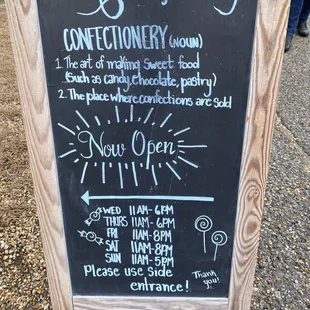 CONFECTIONERY (NOUN)
1. The art of making sweet food
(Such as candy, chocolate, pastry)
2. The place where confections are sold
Now Open
WED 11AM-6PM
THURS 11AM-6PM
FRI 11AM-8PM
SAT 11AM-8PM
SUN 11AM-5PM
Please use side
entrance!
Thank
you!